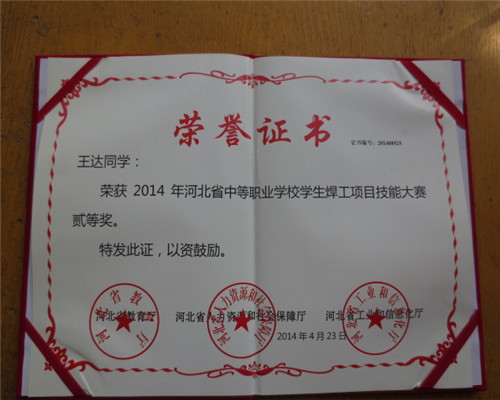 荣誉证书
证书编号：201408525
王达同学：
荣获 2014 年河北省中等职业学校学生焊工项目技能大赛
贰等奖。
特发此证，以资鼓励。
河北省教育厅 河北省人力资源和社会保障厅 河北省工业和信息化厅
河北省教育厅
河北省人力资源和社会保障厅
河北省工业和信息化厅
2014 年 4 月 23 日